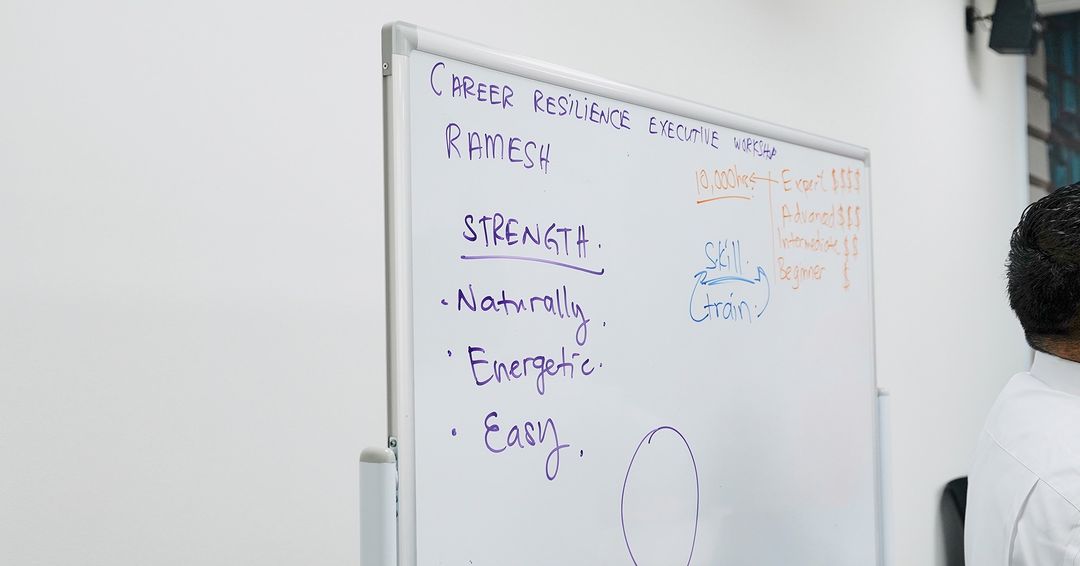 CAREER RESILIENCE EXECUTIVE WORKSHP
RAMESH
STRENGTH.
• Naturally.
• Energetic.
• Easy.
10,000hrs ← Expert $$$$
Advanced $$$
Intermediate $$
Beginner $
Skill.
train.